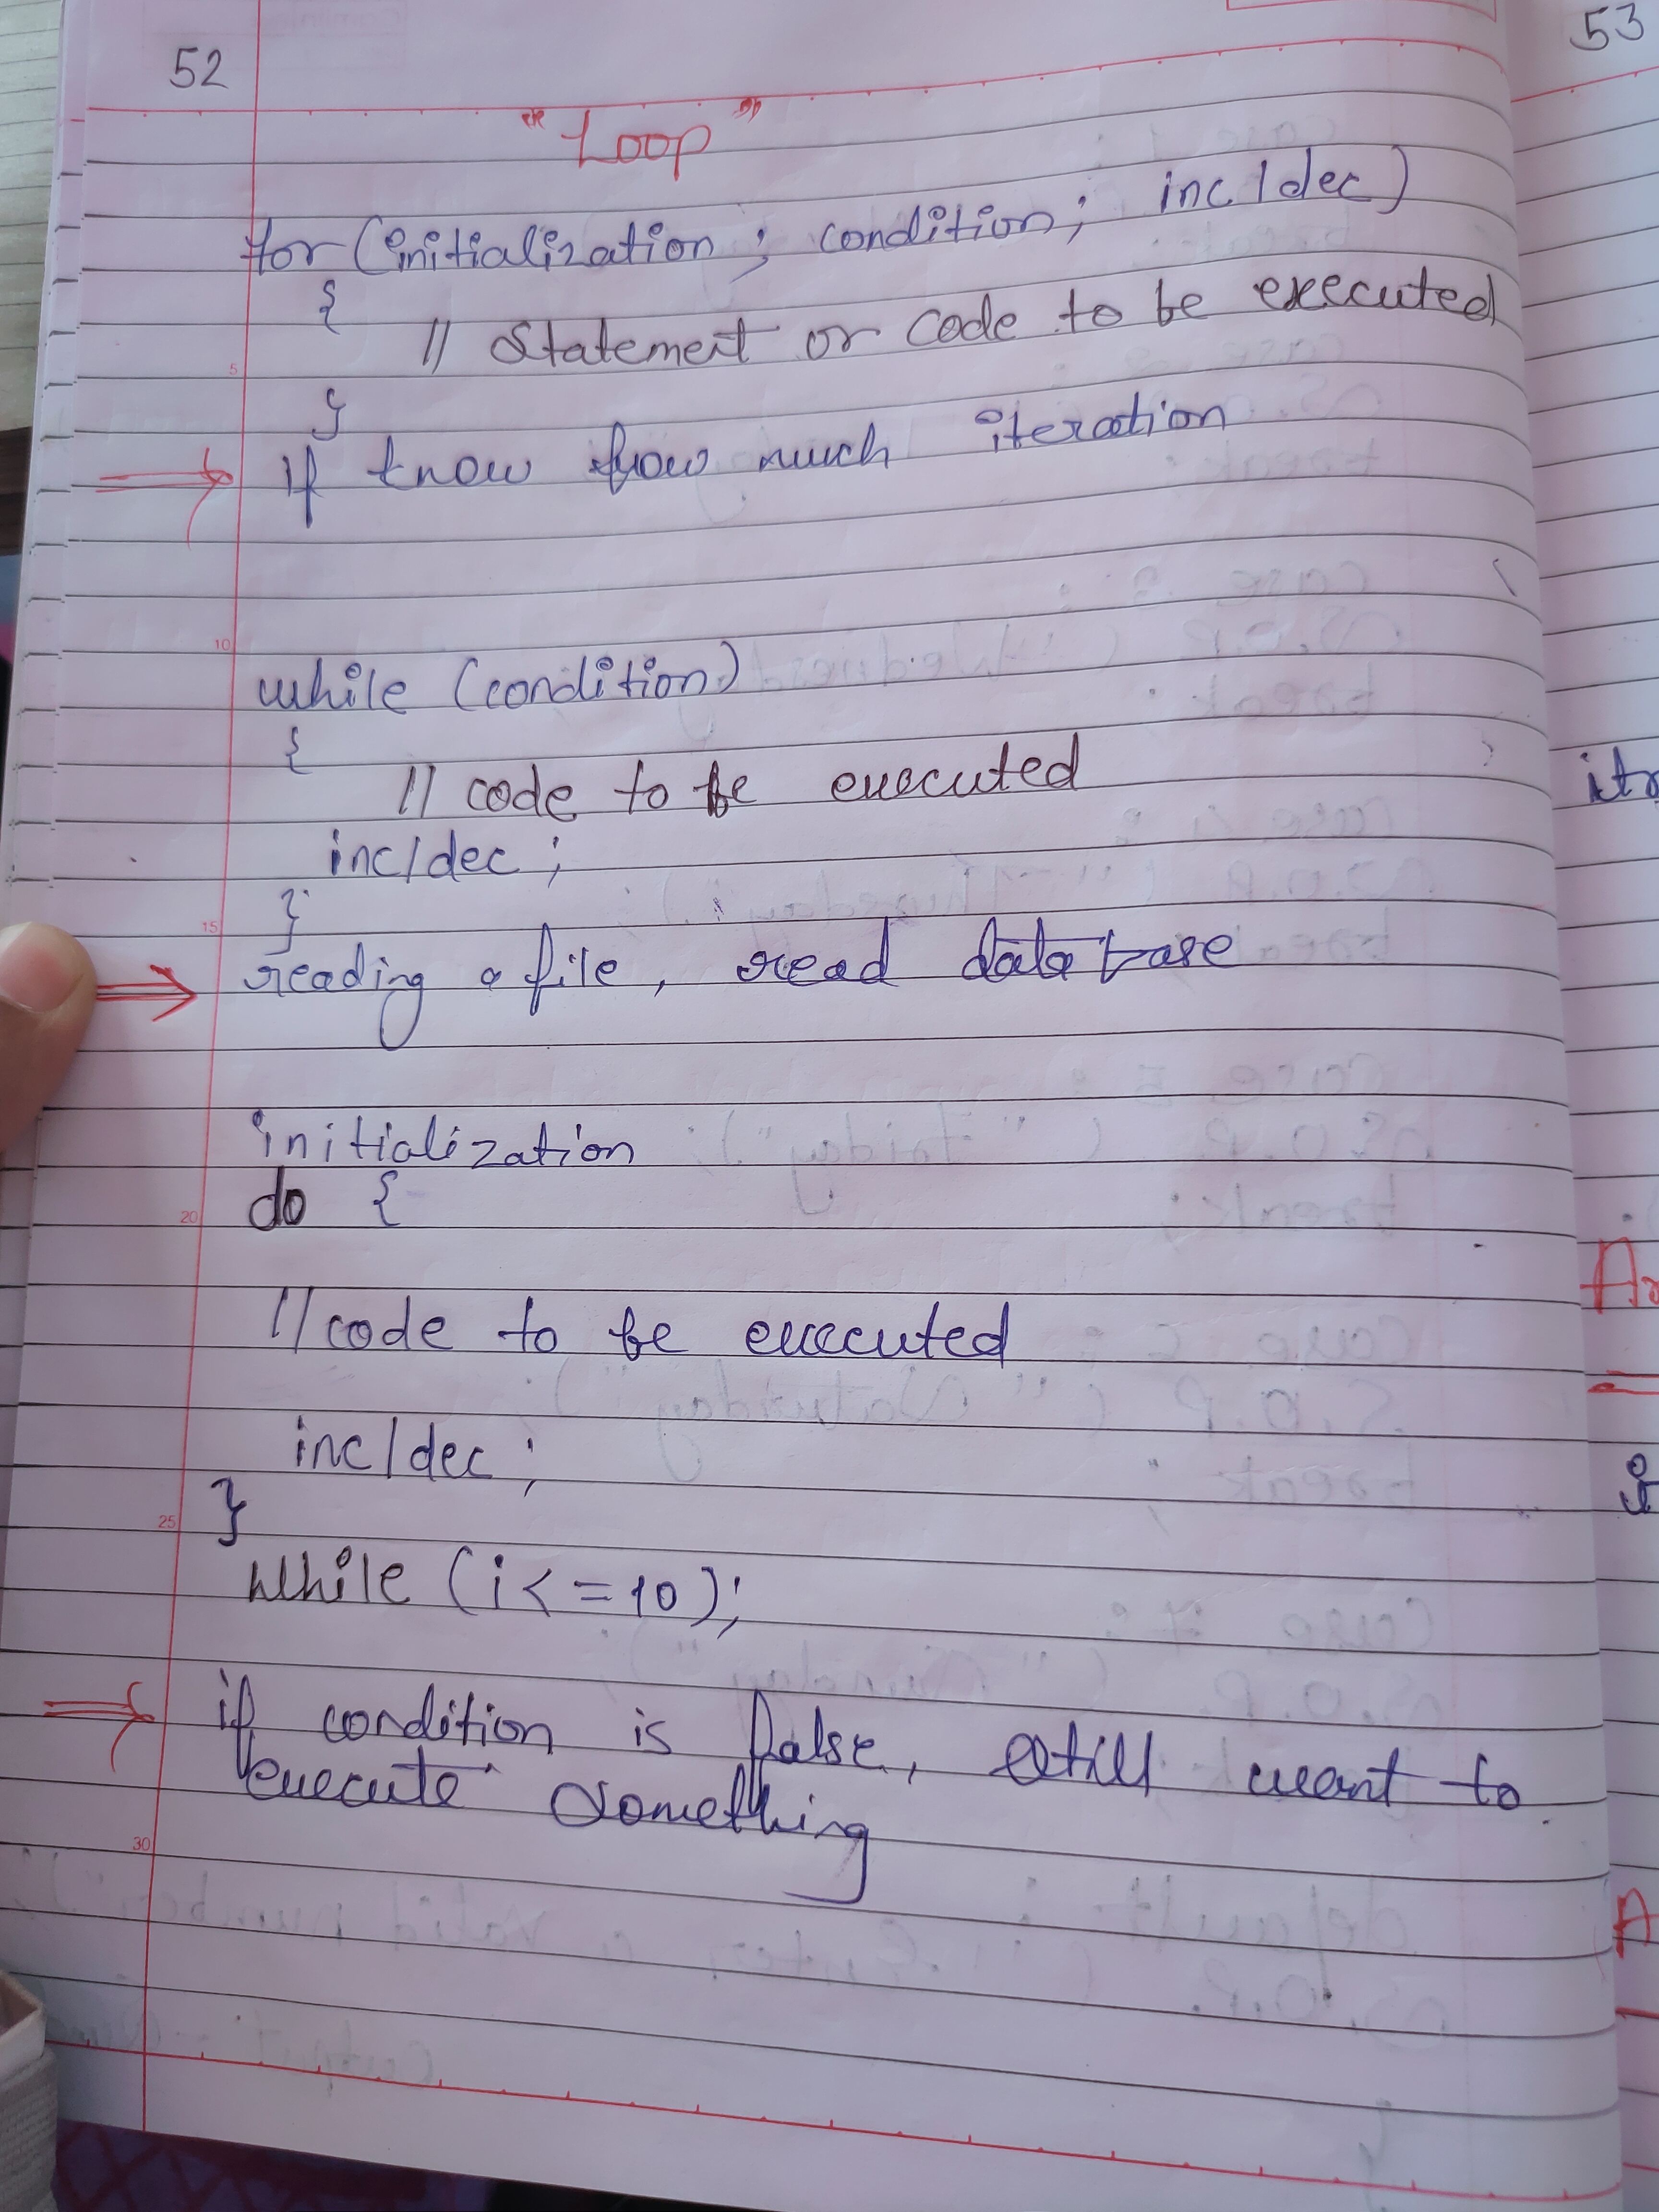 52
53
"Loop"
for (initialization ; condition; inc/dec)
{
// Statement or code to be executed
}
⇒ if know how much iteration
while (condition)
{
// code to be executed
inc/dec ;
}
⇒ reading a file, read database
initialization
do {
// code to be executed
inc/dec ;
}
while (i<=10);
⇒ if condition is false, still want to
execute something
5
10
15
20
25
30